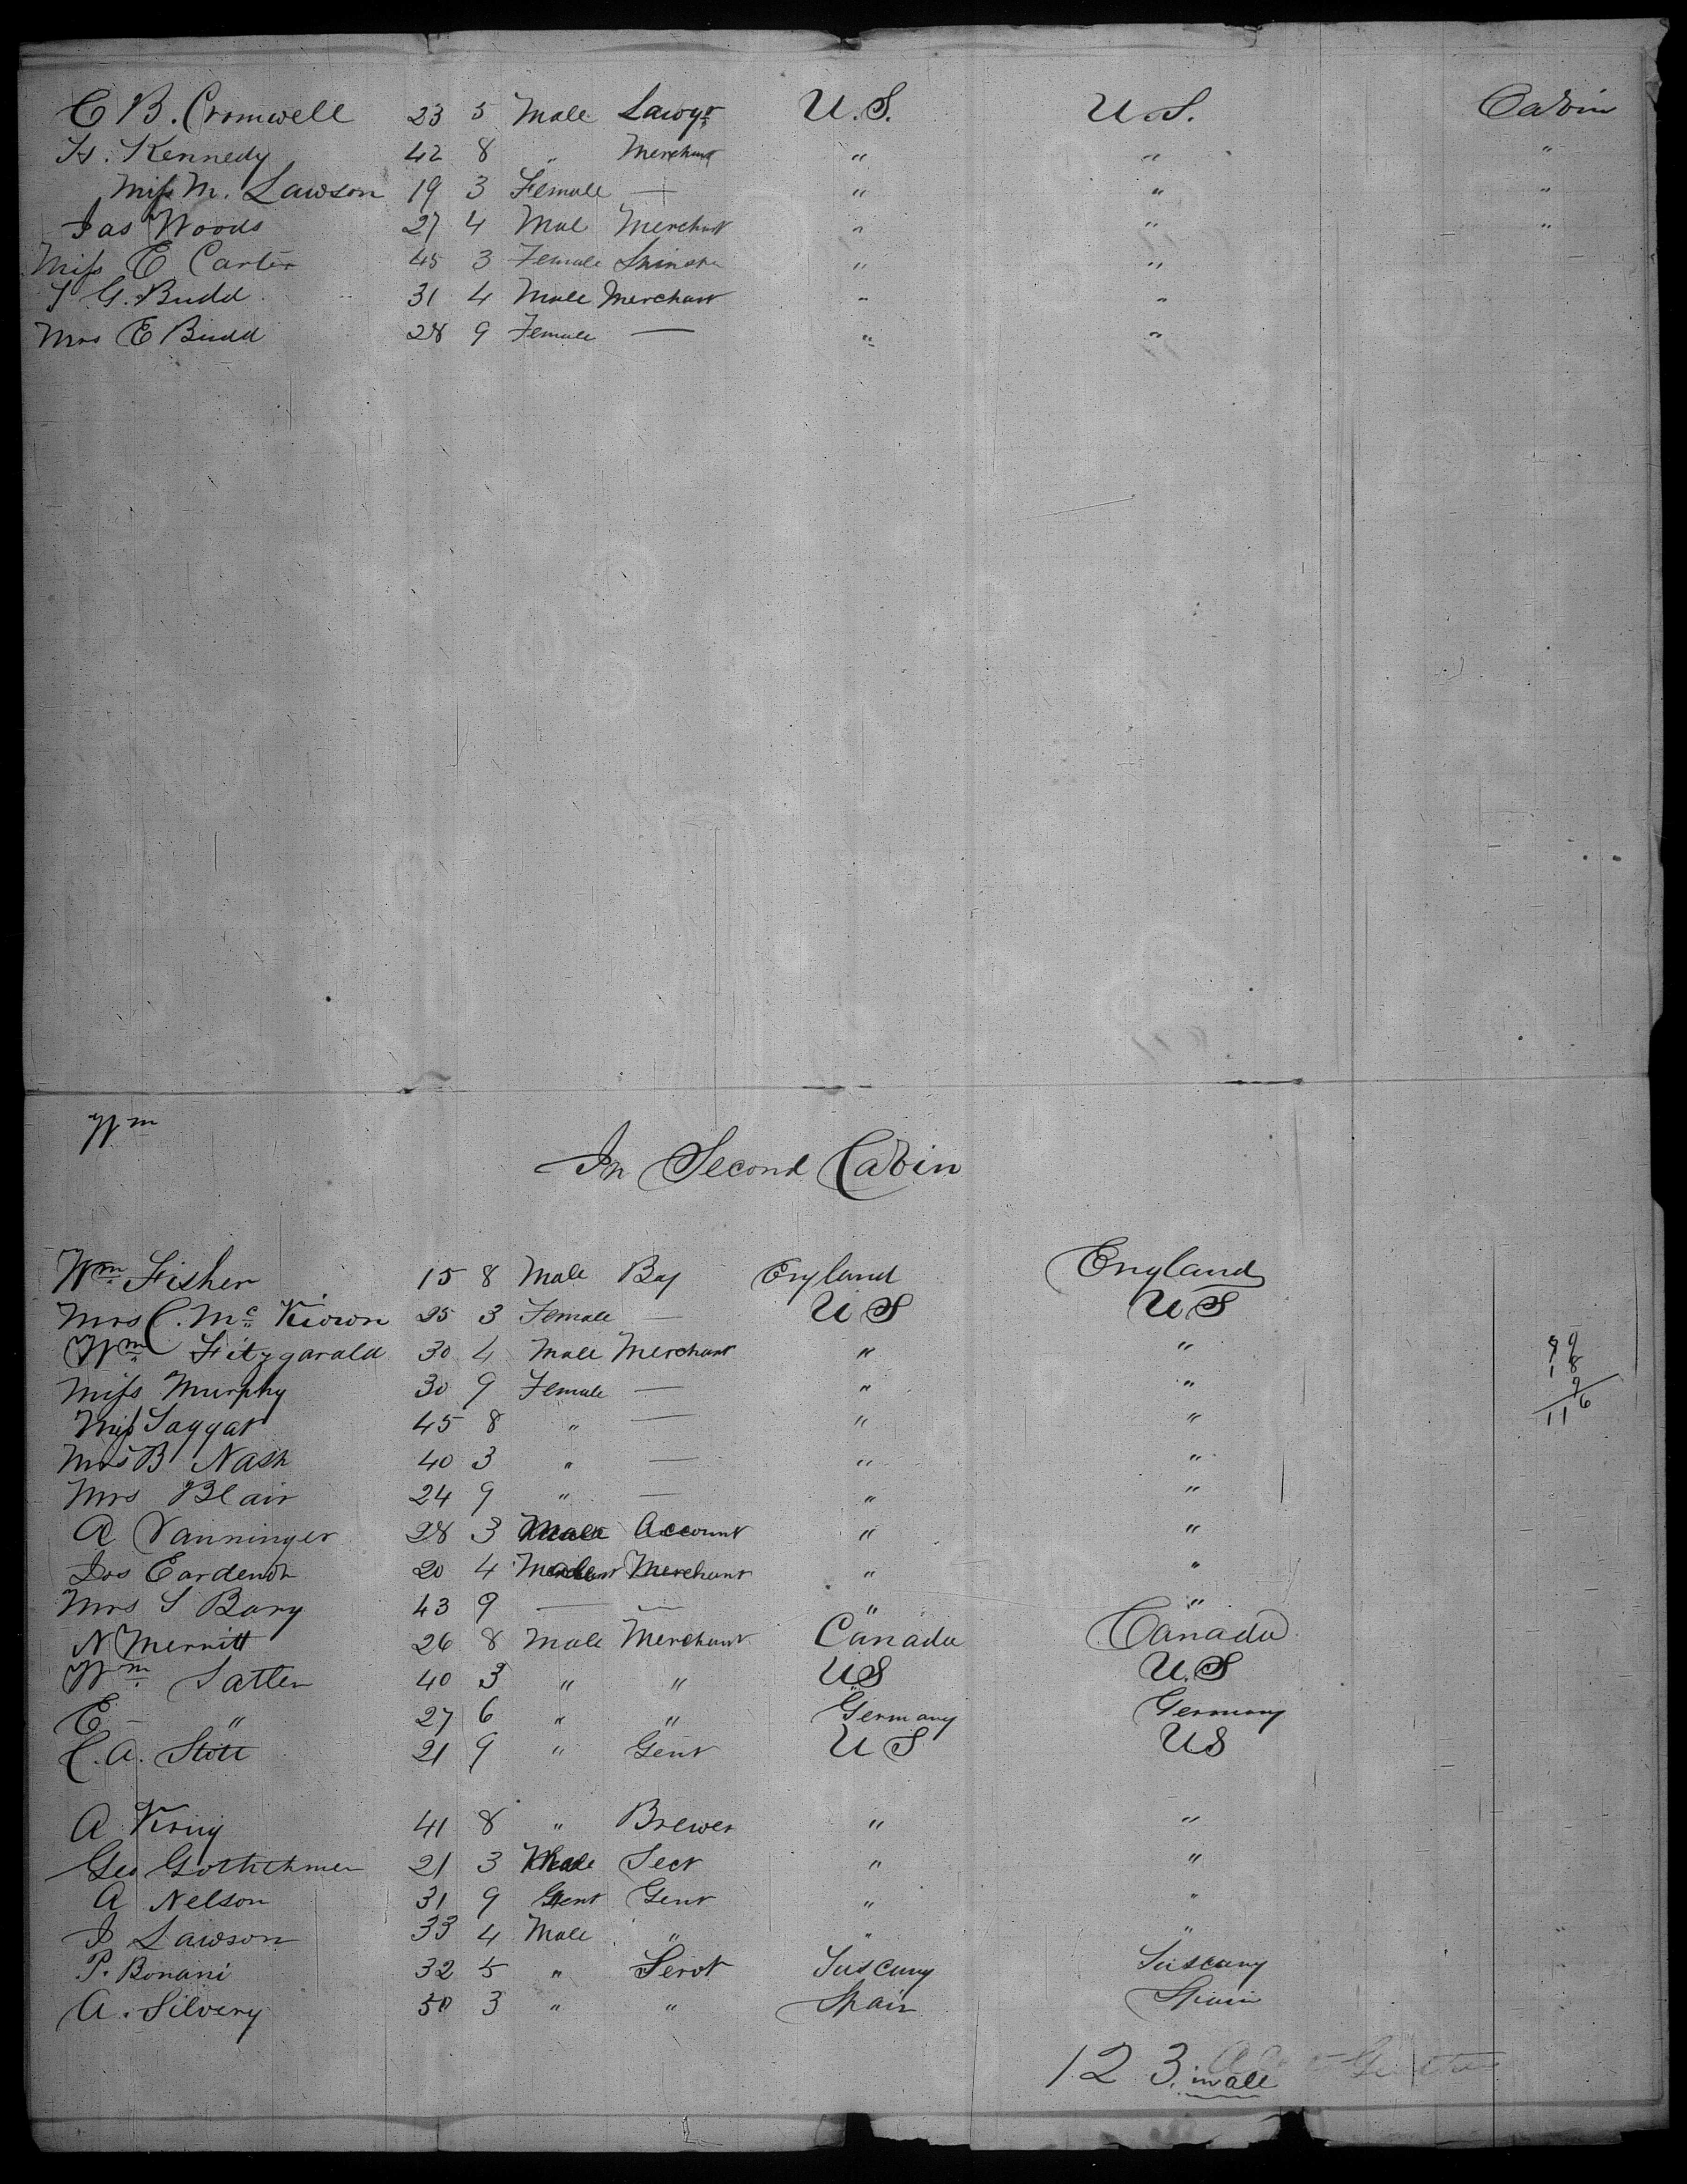 C B. Cromwell 23 5 Male Lawyr U.S. U.S. Cabin
H. Kennedy 42 8 " Merchant " " "
Miss M. Lawson 19 3 Female — " " "
Jas Woods 27 4 Mal Merchant " " "
Miss E Carter 45 3 Female Spinster " "
G. Budd 31 4 Male Merchant " "
Mrs E Budd 28 9 Female — " "
Wm
In Second Cabin
Wm Fisher 15 8 Male Boy England England
Mrs C. Mc Kiown 25 3 Female — U S U S
Wm Fitzgarald 30 4 Male Merchant " " 99
18
Miss Murphy 30 9 Female — " " 9
Miss Taggart 45 8 " — " " 116
Mrs B Nash 40 3 " — " "
Mrs Blair 24 9 " — " "
A Vanninger 28 3 Male Account " "
Jos 20 4 Merchant " "
Mrs S Bary 43 9 — — " "
N Merritt 26 8 Male Merchant Canada Canada
Wm Satler 40 3 " " US U.S
E " 27 6 " " Germany Germany
C. A. Stott 21 9 " Gent U S US
A Krug 41 8 " Brewer " "
Geo 21 3 Male Sect " "
A Nelson 31 9 Gent Gent " "
J Lawson 33 4 Male " " "
P. Bonani 32 5 " Servt Tuscany Tuscany
A. Silvery 50 3 " " Spain Spain
123 in all